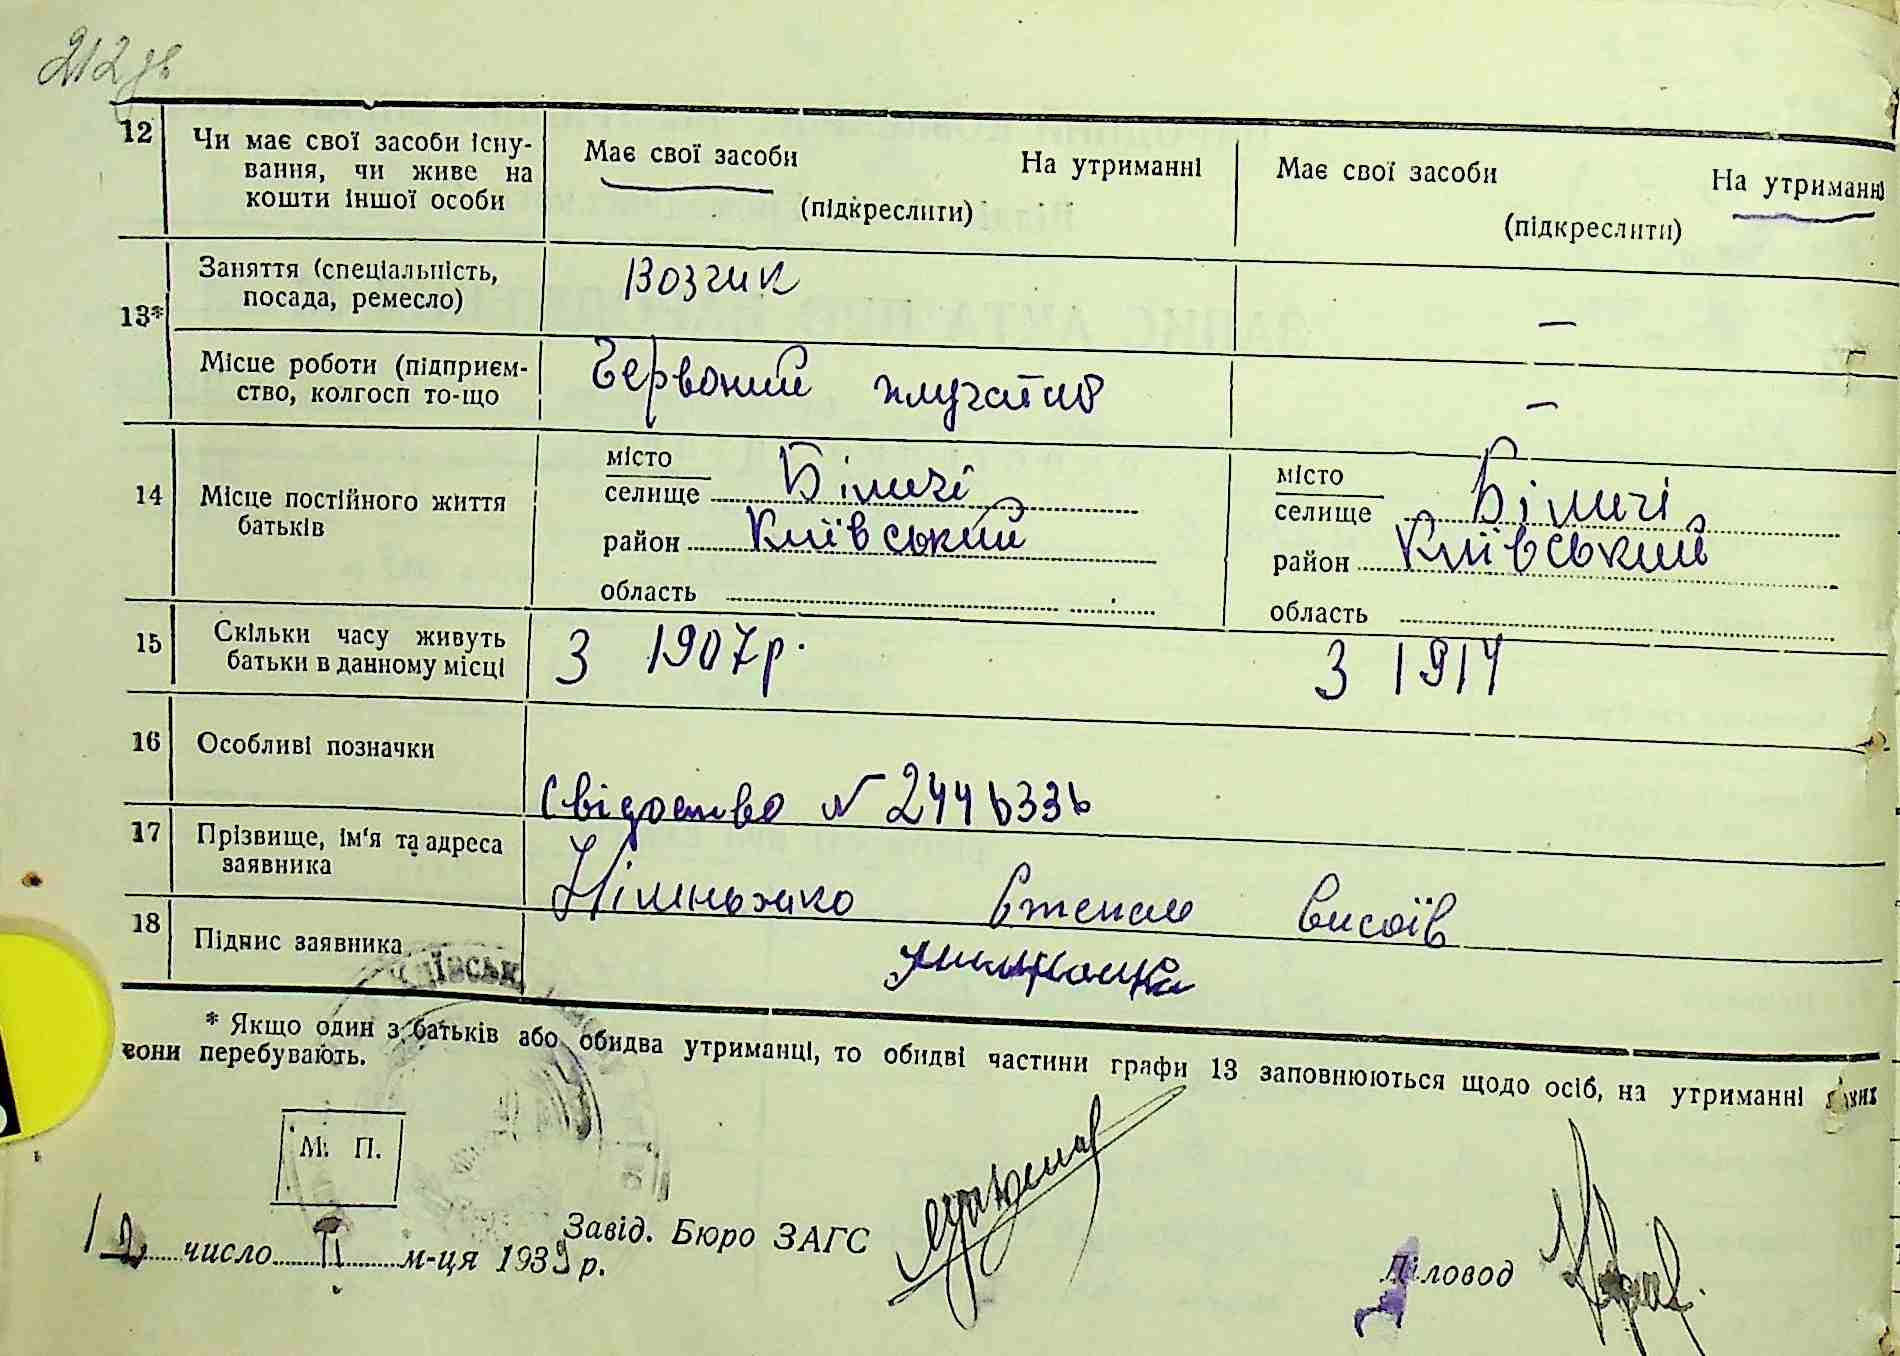 212
12 Чи має свої засоби існу-
вання, чи живе на
кошти іншої особи
Має свої засоби На утриманні
(підкреслити)
Має свої засоби На утриманні
(підкреслити)
13*
Заняття (спеціальність,
посада, ремесло)
Возчик
—
Місце роботи (підприєм-
ство, колгосп то-що
Червоний
—
14 Місце постійного життя
батьків
місто
селище Біличі
район Київський
область
місто
селище Біличі
район Київський
область
15 Скільки часу живуть
батьки в данному місці
З 1907р.
З 1914
16 Особливі позначки
Свідоство N 2446336
17 Прізвище, ім'я та адреса
заявника
Степан
18 Підпис заявника
Київськ
* Якщо один з батьків або обидва утриманці, то обидві частини графи 13 заповнюються щодо осіб, на утриманні яких
вони перебувають.
М. П.
Завід. Бюро ЗАГС
12 число II м-ця 1939 р.
Діловод